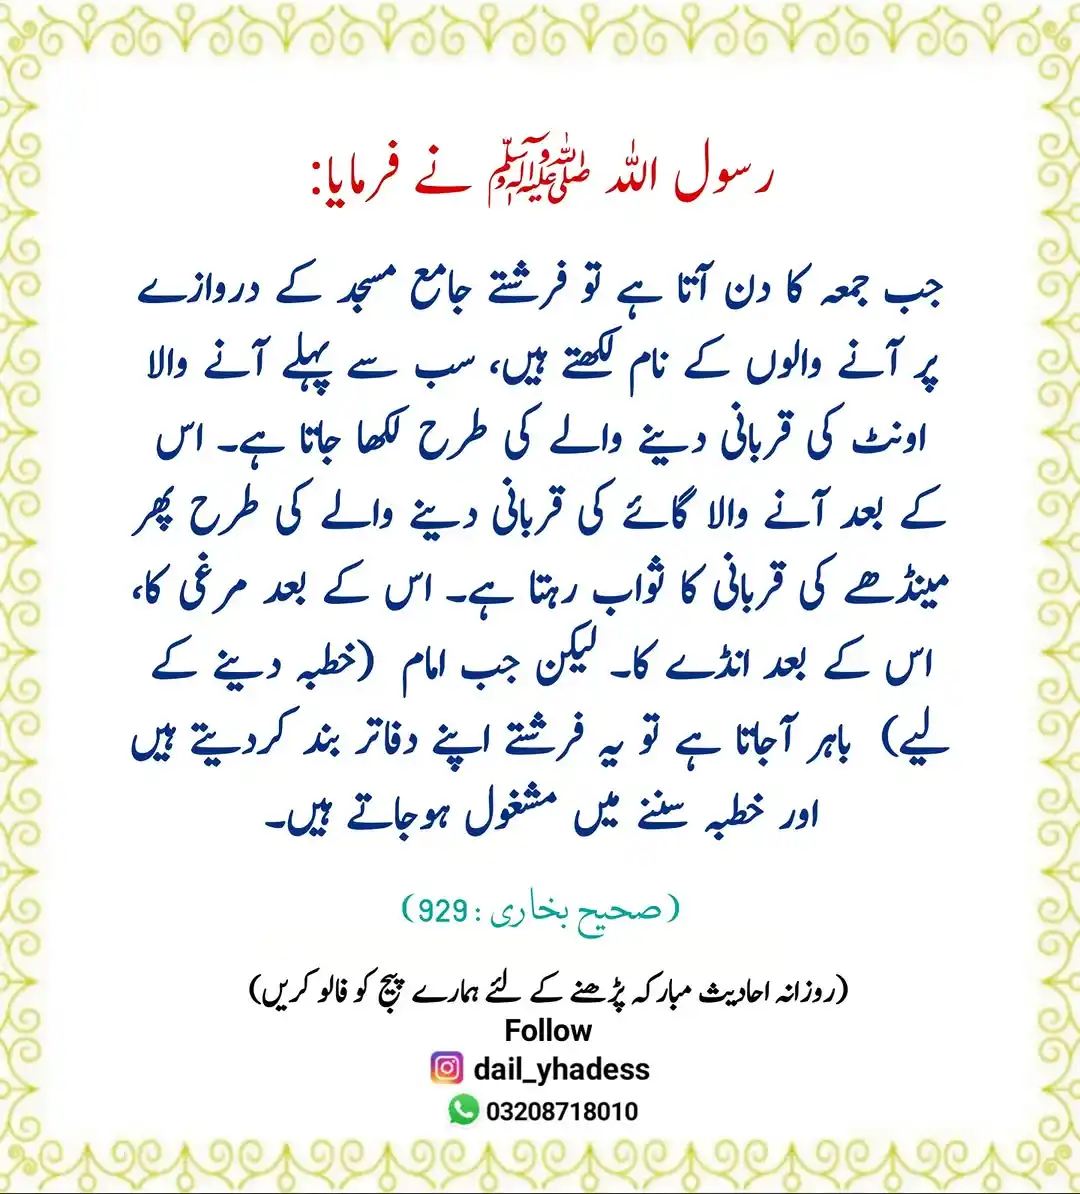 رسول اللہ ﷺ نے فرمایا:
جب جمعہ کا دن آتا ہے تو فرشتے جامع مسجد کے دروازے
پر آنے والوں کے نام لکھتے ہیں، سب سے پہلے آنے والا
اونٹ کی قربانی دینے والے کی طرح لکھا جاتا ہے۔ اس
کے بعد آنے والا گائے کی قربانی دینے والے کی طرح پھر
مینڈھے کی قربانی کا ثواب رہتا ہے۔ اس کے بعد مرغی کا،
اس کے بعد انڈے کا۔ لیکن جب امام (خطبہ دینے کے
لیے) باہر آجاتا ہے تو یہ فرشتے اپنے دفاتر بند کردیتے ہیں
اور خطبہ سننے میں مشغول ہوجاتے ہیں۔
(صحیح بخاری : 929)
(روزانہ احادیث مبارکہ پڑھنے کے لئے ہمارے پیج کو فالو کریں)
Follow
dail_yhadess
03208718010